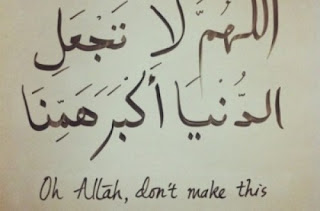 اللَّهُمَّ لَا تَجْعَلِ
الدُّنْيَا أَكْبَرَ هَمِّنَا
Oh Allāh, don't make this